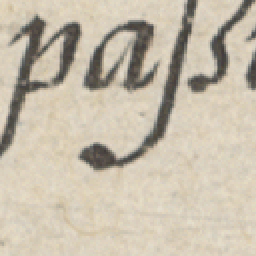 paſs